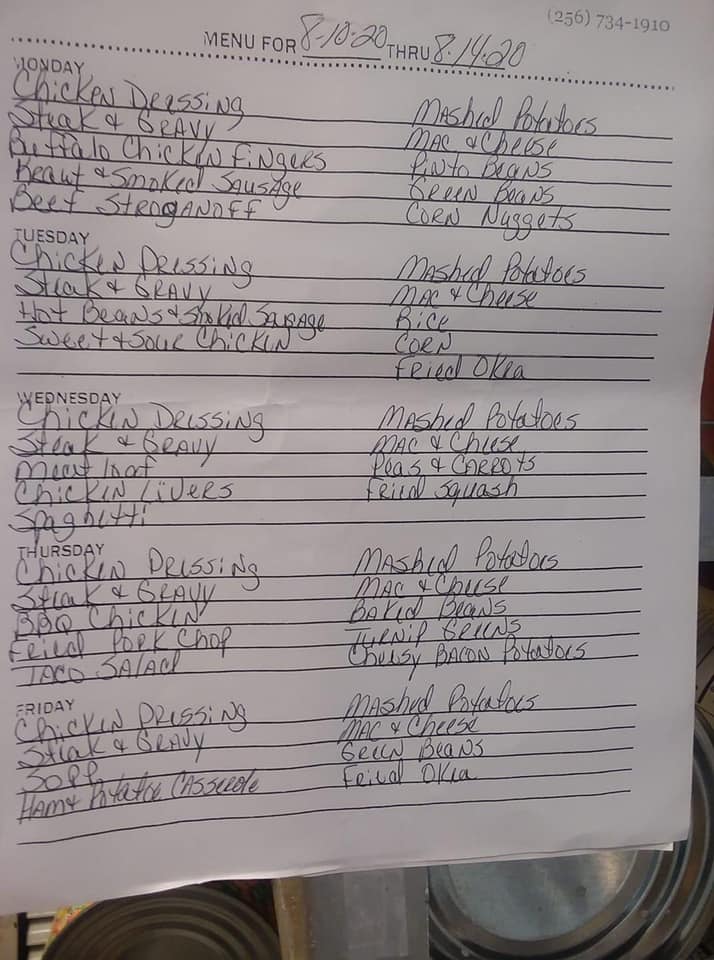 (256) 734-1910
MENU FOR 8-10-20 THRU 8-14-20
MONDAY
Chicken Dressing Mashed Potatoes
Steak & Gravy Mac & Cheese
Buffalo Chicken Fingers Pinto Beans
Kraut & Smoked Sausage Green Beans
Beef Stroganoff Corn Nuggets
TUESDAY
Chicken Dressing Mashed Potatoes
Steak & Gravy Mac & Cheese
Hot Beans & Smoked Sausage Rice
Sweet & Sour Chicken Corn
Fried Okra
WEDNESDAY
Chicken Dressing Mashed Potatoes
Steak & Gravy Mac & Cheese
Meat loaf Peas & Carrots
Chicken Livers Fried Squash
Spaghetti
THURSDAY
Chicken Dressing Mashed Potatoes
Steak & Gravy Mac & Cheese
BBQ Chicken Baked Beans
Fried Pork Chop Turnip Greens
Taco Salad Cheesy Bacon Potatoes
FRIDAY
Chicken Dressing Mashed Potatoes
Steak & Gravy Mac & Cheese
Green Beans
Ham & Potatoe Casserole Fried Okra